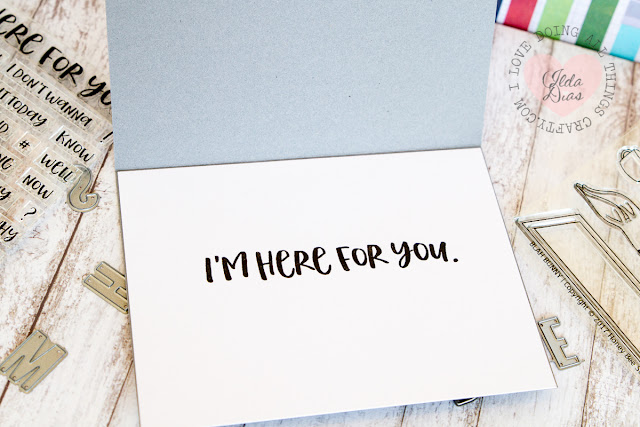 HERE FOR YOU
I DON'T WANNA !
IT TODAY KNOW
# WELL
NOW
?
I'M HERE FOR YOU.
I LOVE DOING ALL THINGS CRAFTY.COM
Ilda
Dias
BLAH BUNNY | Copyright © 2017 Honey Bee S
M
E